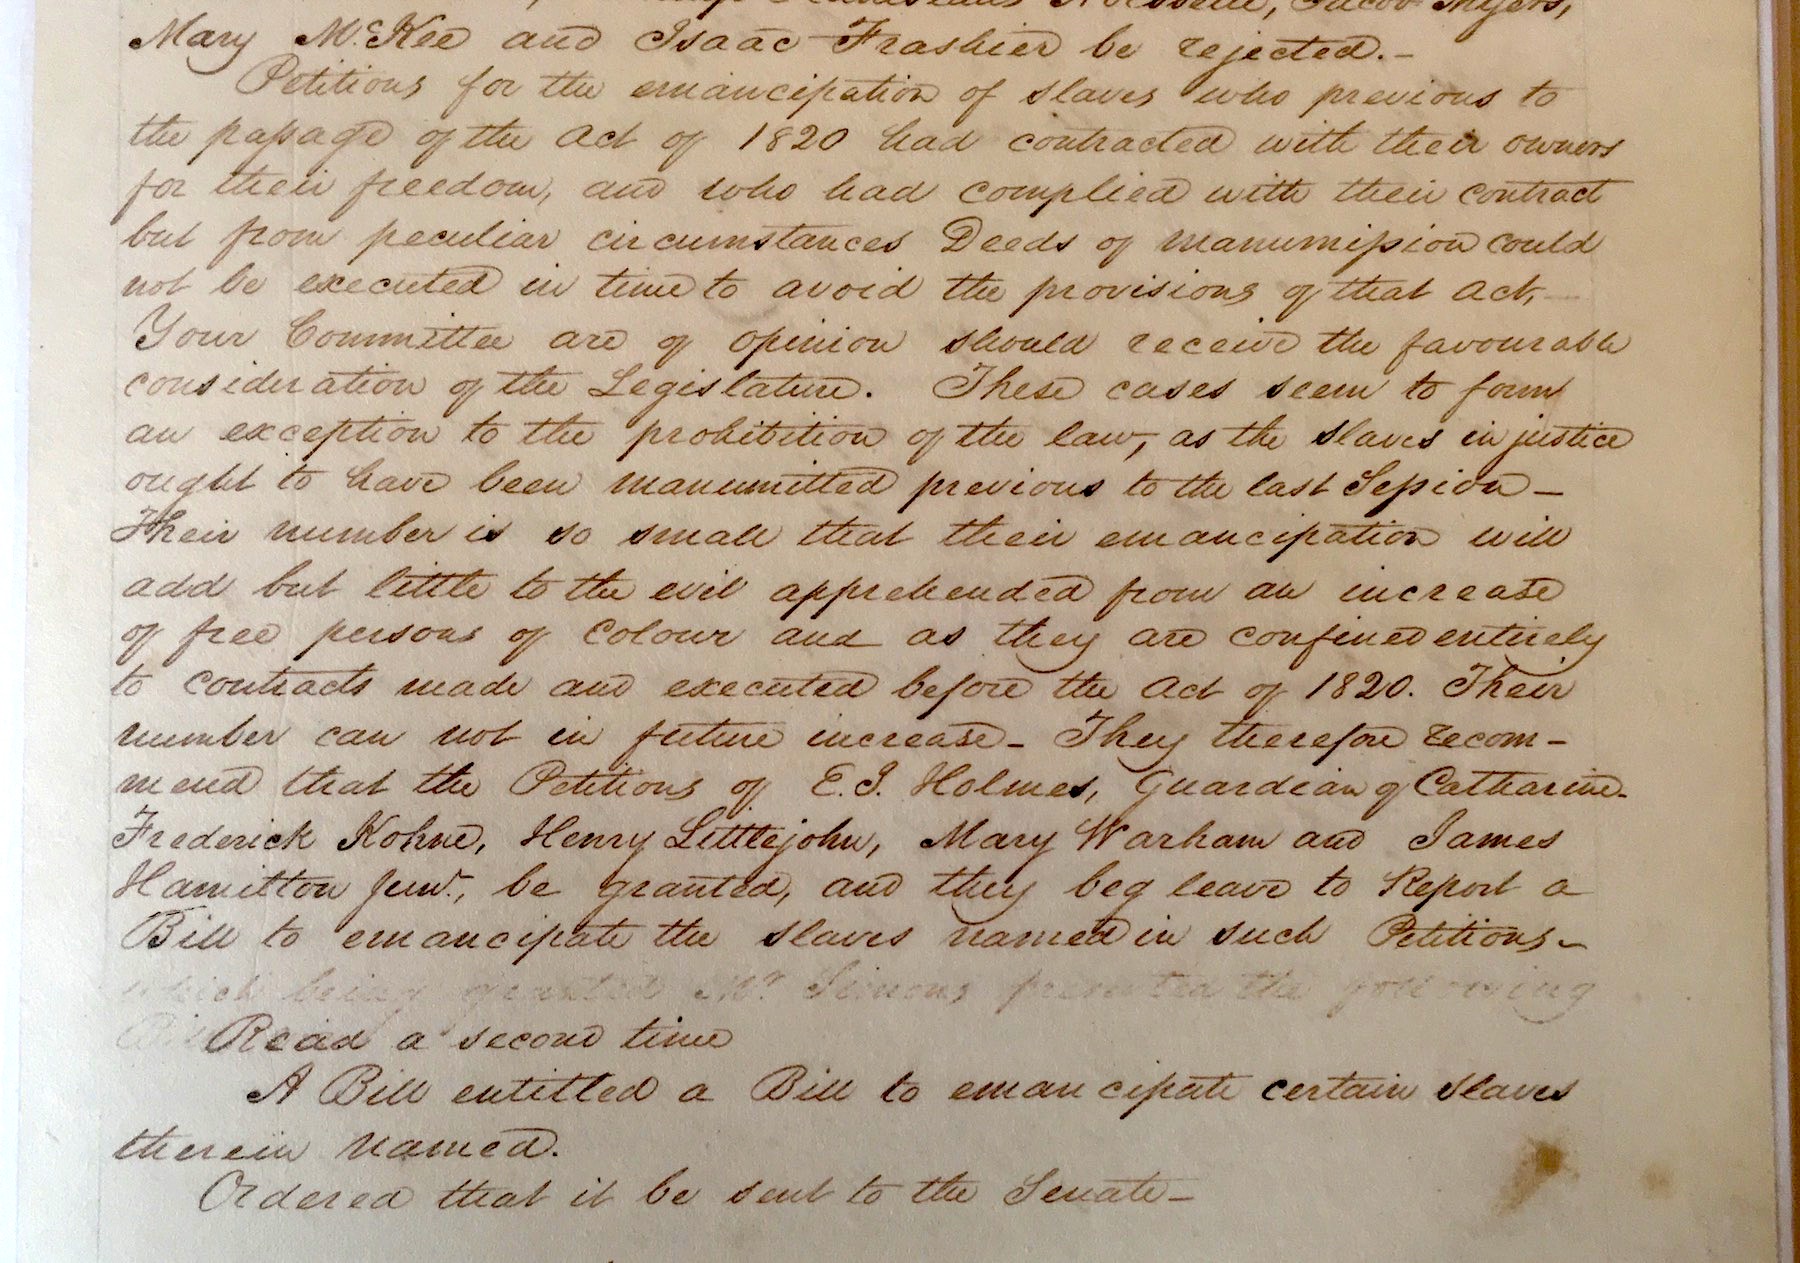 Jacob Myers,
Mary McKee and Isaac Frashier be rejected.-
Petitions for the emancipation of slaves who previous to
the passage of the Act of 1820 had contracted with their owners
for their freedom, and who had complied with their contract
but from peculiar circumstances Deeds of manumission could
not be executed in time to avoid the provisions of that Act,
Your Committee are of opinion should receive the favourable
consideration of the Legislature. These cases seem to form
an exception to the prohibition of the law, as the slaves in justice
ought to have been manumitted previous to the last Session-
Their number is so small that their emancipation will
add but little to the evil apprehended from an increase
of free persons of Colour and as they are confined entirely
to contracts made and executed before the Act of 1820. Their
number can not in future increase- They therefore recom-
mend that the Petitions of E. I. Holmes, Guardian of Catharine-
Frederick Kohne, Henry Littlejohn, Mary Warham and James
Hamilton Junr., be granted, and they beg leave to Report a
Bill to emancipate the slaves named in such Petitions-
which being granted Mr. Simons presented the following
Bill
Read a second time
A Bill entitled a Bill to emancipate certain slaves
therein named.
Ordered that it be sent to the Senate-